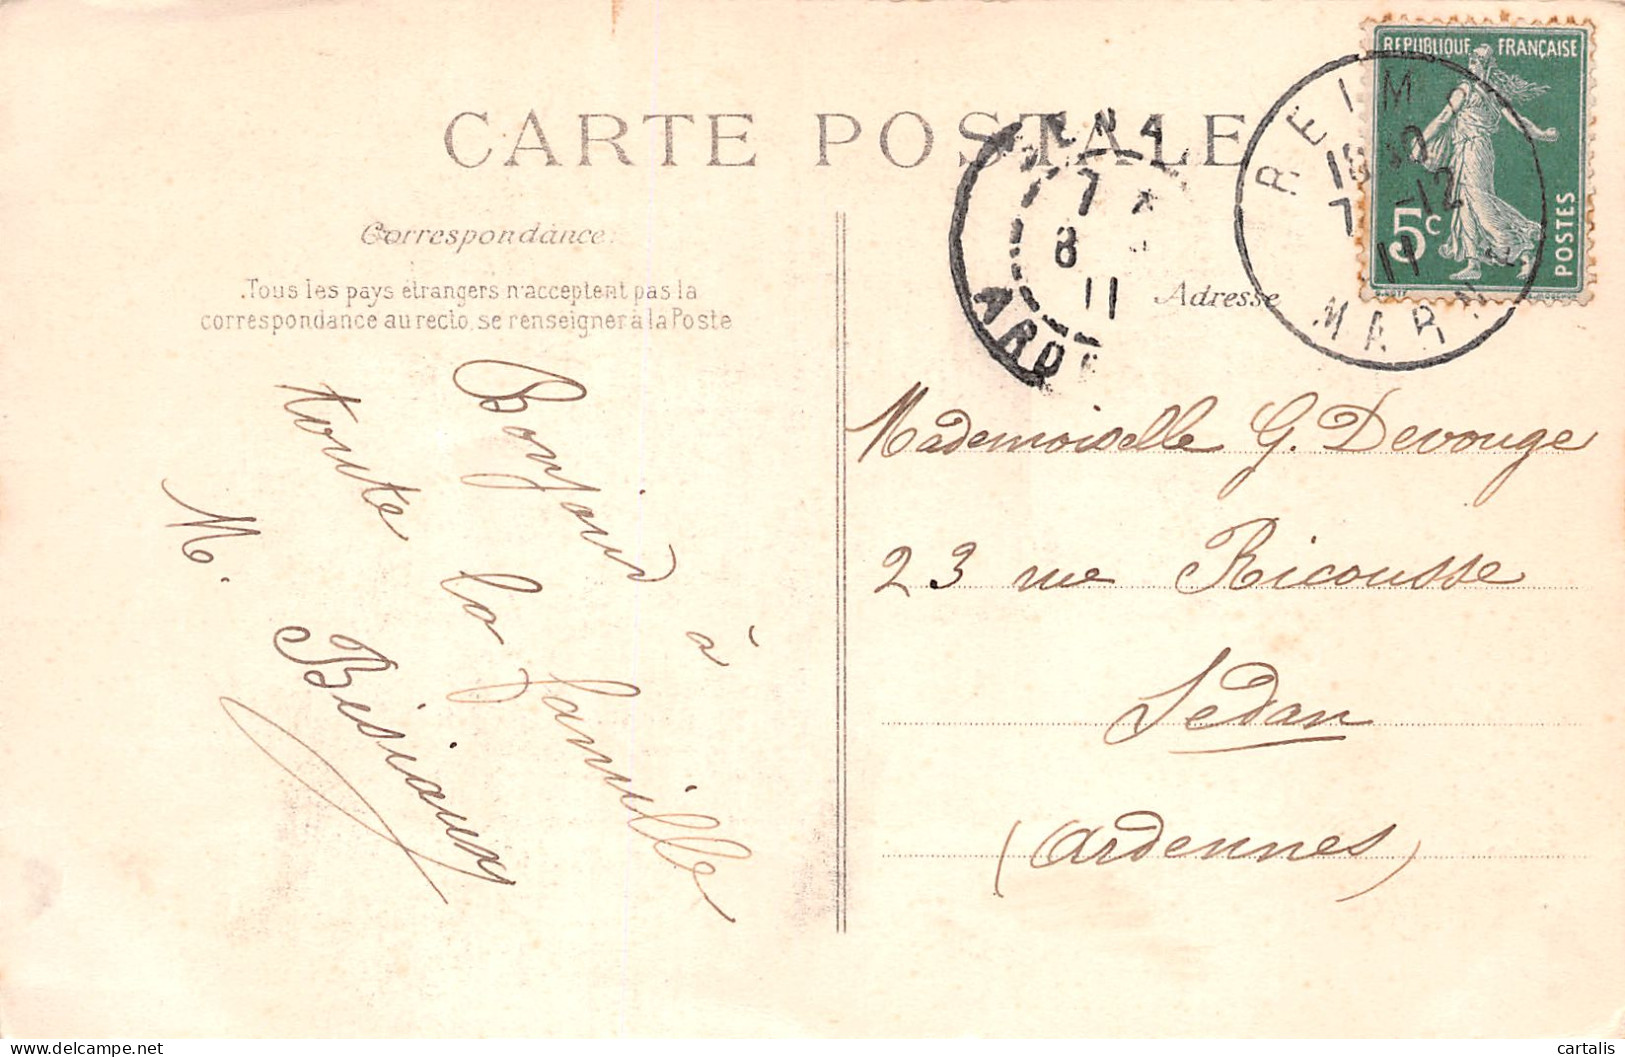 CARTE POSTALE
Correspondance.
Tous les pays étrangers n'acceptent pas la
correspondance au recto, se renseigner à la Poste
Bonjour à
toute la famille
M.
Adresse
REPUBLIQUE FRANÇAISE
5c
POSTES
REIM
7 -12
11
MARNE
7
8
11
ARDE
Mademoiselle G. Devouge
23 rue Ricousse
Sedan
(Ardennes)
cartalis